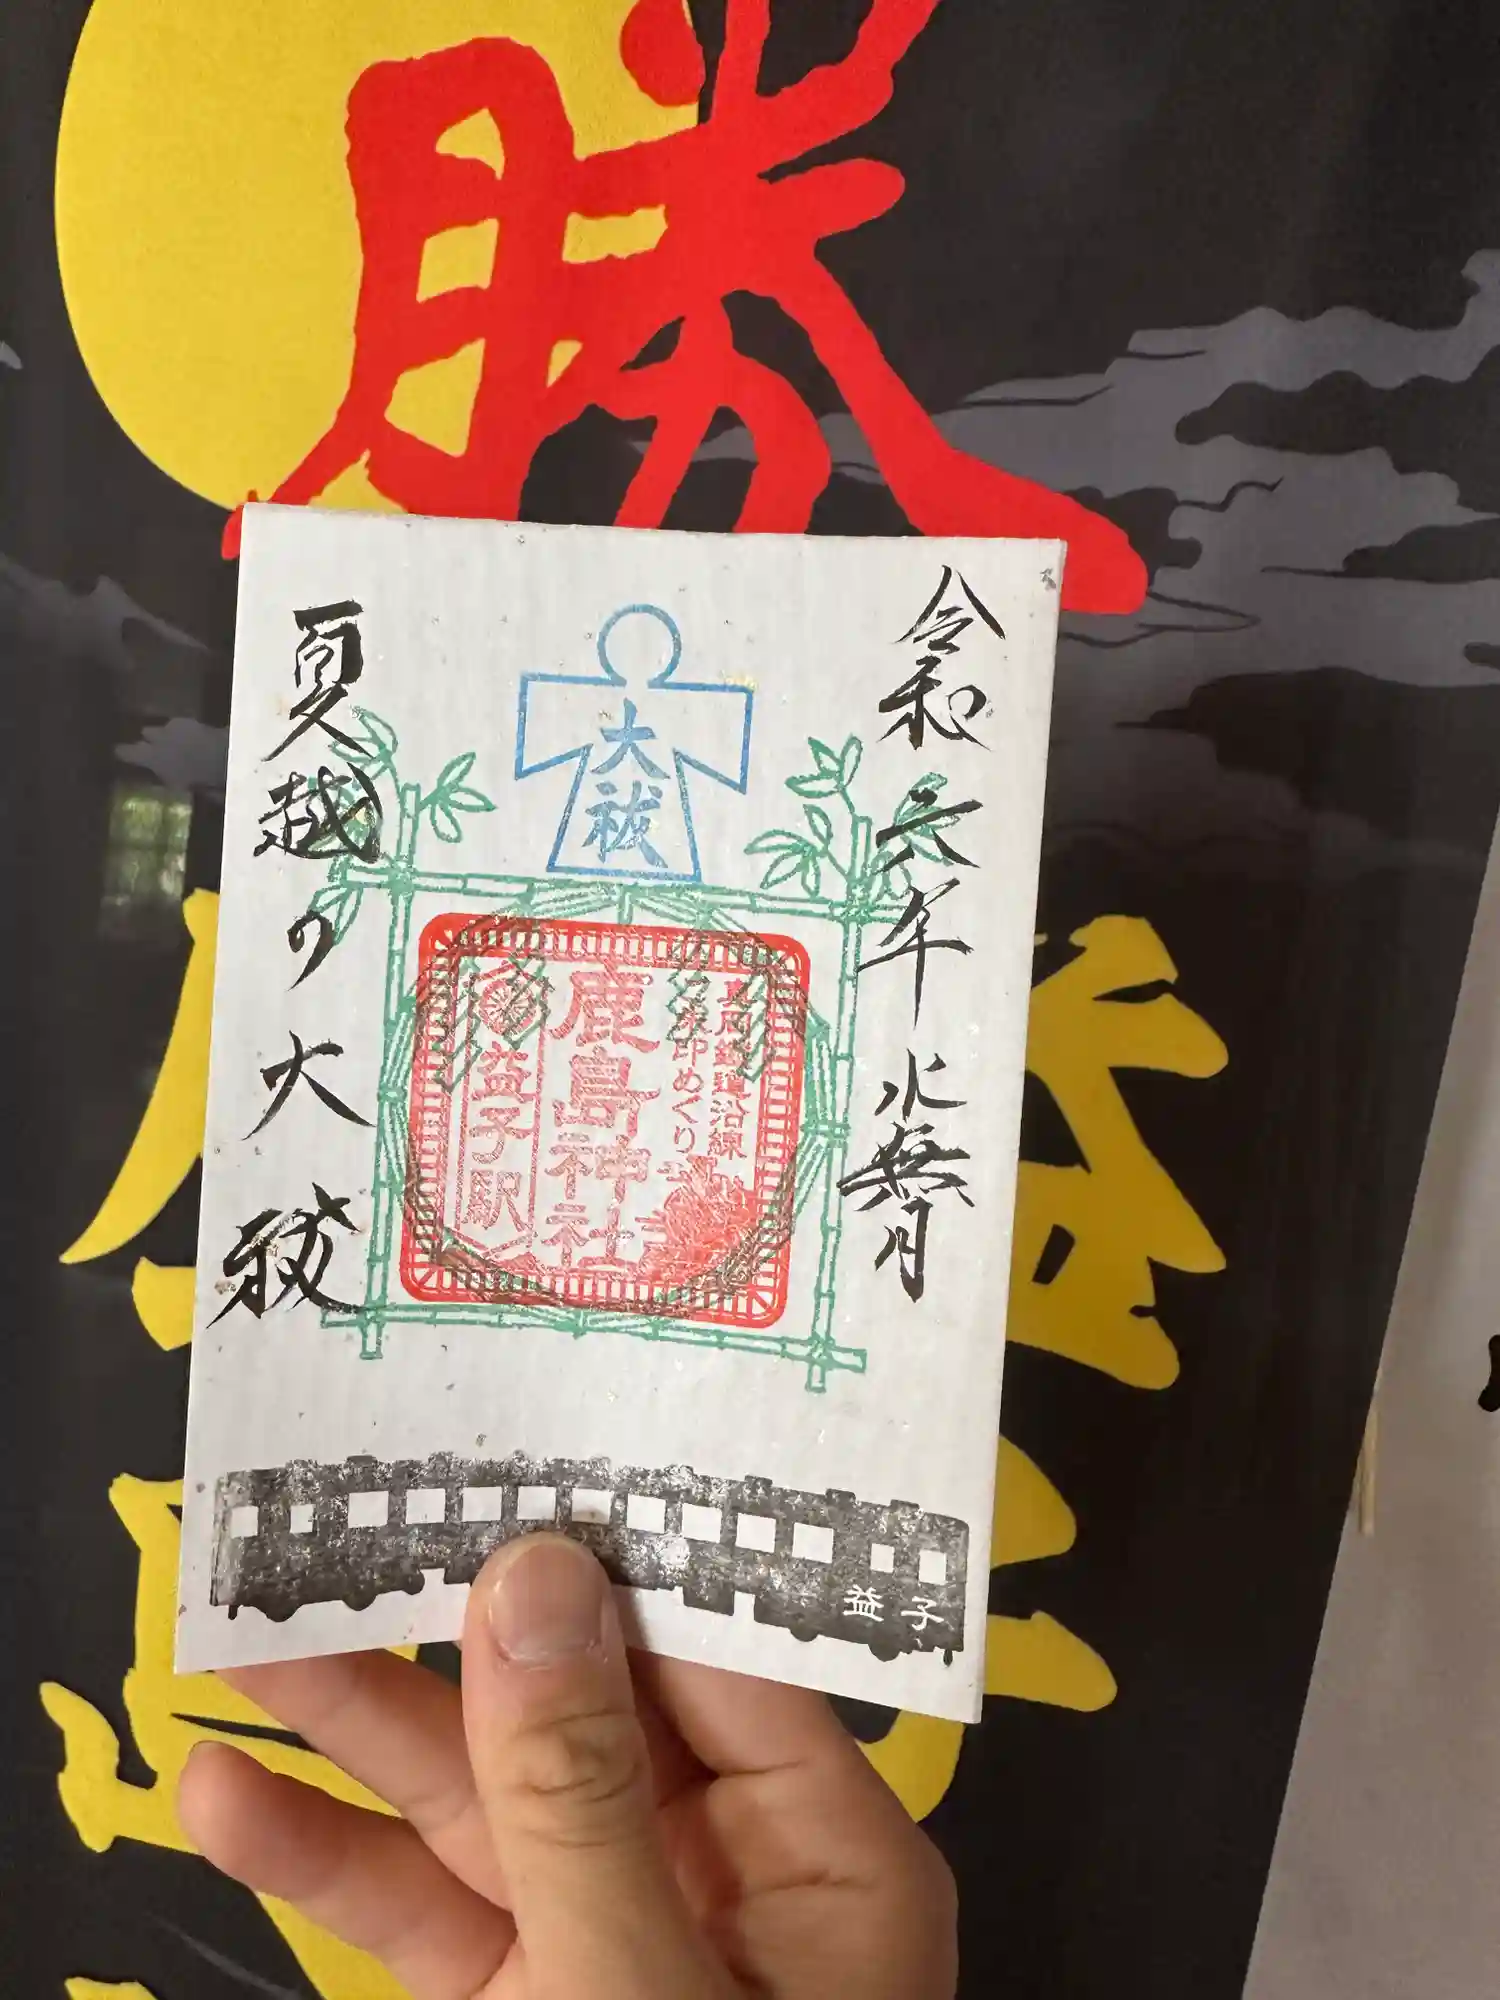 勝
令和六年 水無月
大祓
真岡鐵道沿線
御朱印めぐり
鹿島神社
益子駅
夏越の大祓
益子